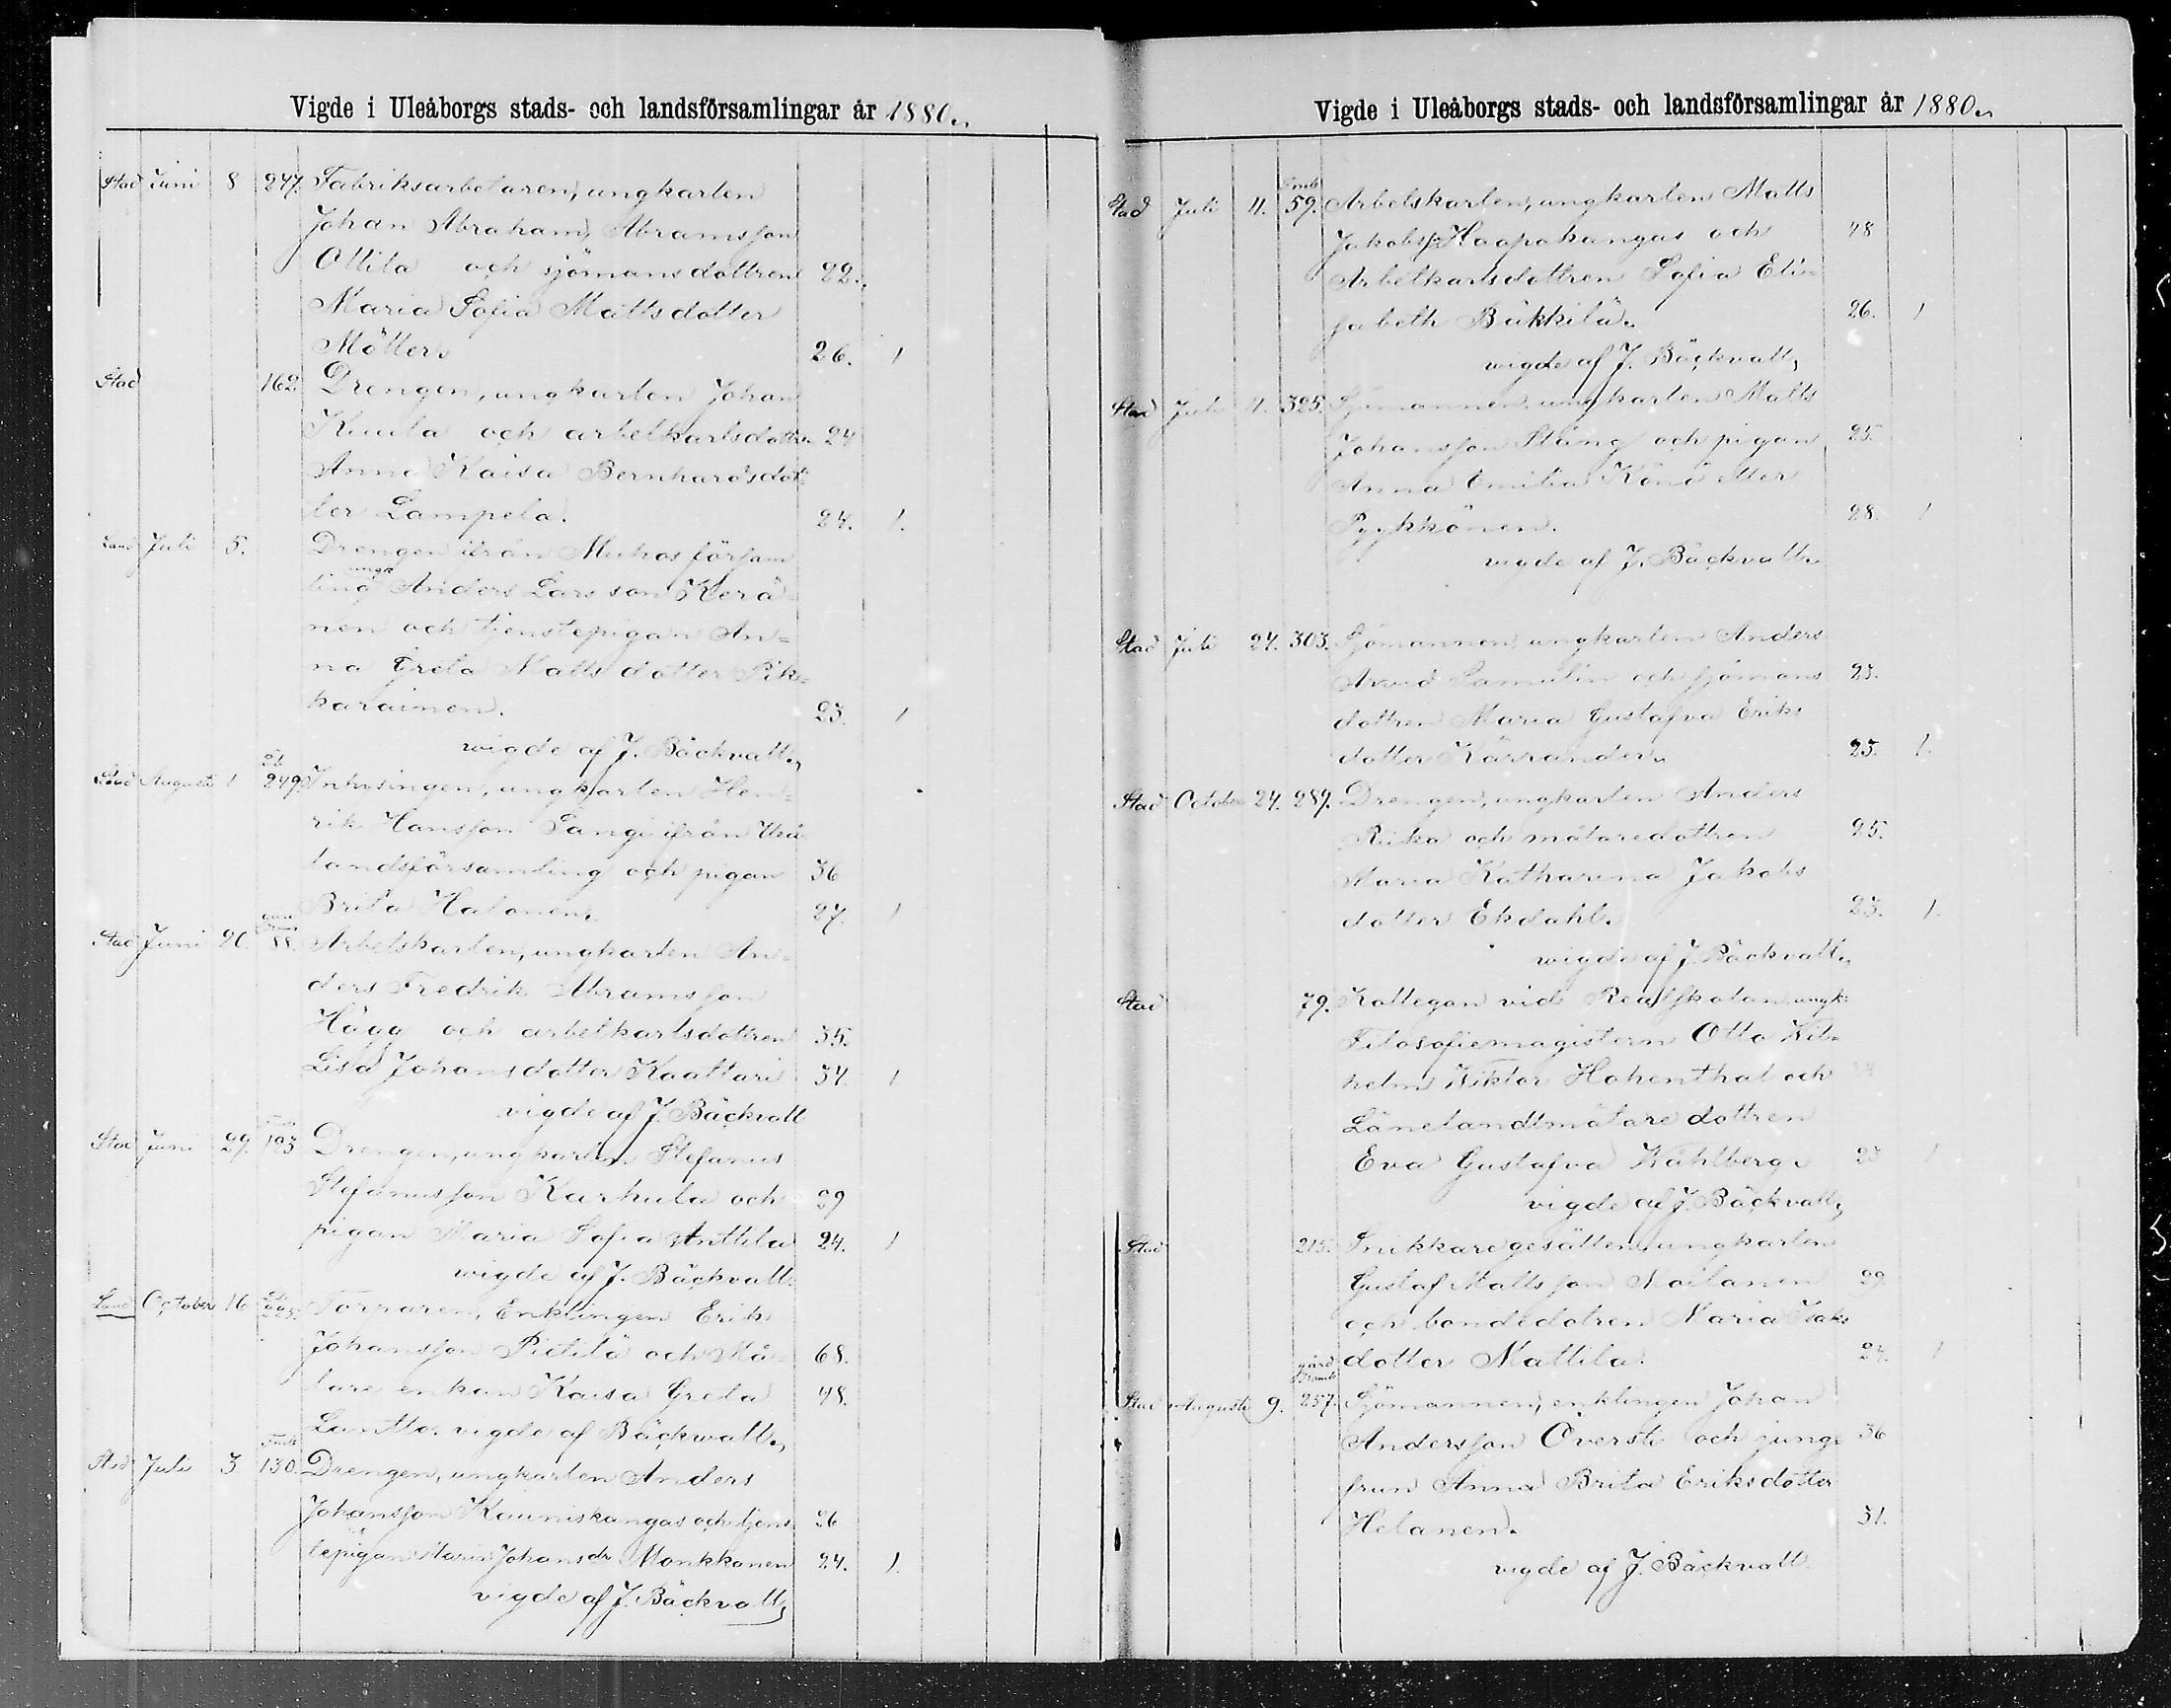 Vigde i Uleåborgs stads- och landsförsamlingar år 1880.
Stad Juni 8 247. Fabriksarbetaren, ungkarlen
Johan Abraham Abramsson
Ollila och sjömansdottren 22.
Maria Sofia Mattsdotter
Möller 26. 1
Stad 162 Drengen, ungkarlen Johan
Kuula och arbetkarlsdottren 24
Anna Kaisa Bernhardsdot-
ter Lampela. 24. 1.
Land Juli 5. Drengen ifrån Muhos försam
ling ungk Anders Larsson Kerä
nen och tjenstepigan An-
na Greta Mattsdotter Pik-
karainen. 23. 1
vigde af J. Bäckvall.
Stad Augusti 1 249. Inhysingen, ungkarlen Hen-
rik Hansson Sangi ifrån Uleå
landsförsamling och pigan 36
Brita Halonen. 27. 1
Stad Juni 20. 88. Arbetskarlen, ungkarlen An-
ders Fredrik Abramsson
Hägg och arbetkarlsdottren 35.
Lisa Johansdotter Kaattari 34. 1
vigde af J. Bäckvall
Stad Juni 29. 193 Drengen, ungkarlen Stefanus
Stefanusson Karhula och 29
pigan Maria Sofia Anttila 24. 1
vigde af J. Bäckvall.
Land October 16 225. Torparen, Enklingen Erik
Johansson Pietilä och Må-
68.
lare enkan Kaisa Greta 48.
Lantto. vigde af Bäckvall.
Stad Juli 3 130. Drengen, ungkarlen Anders
Johansson Kauniskangas och tjens 26
tepigan Maria Johansdr Monkkonen 24. 1.
vigde af J. Bäckvall
Vigde i Uleåborgs stads- och landsförsamlingar år 1880.
Stad Juli 11. 59. Arbetskarlen, ungkarlen Matts
Jakobss. Haapakangas och 48
Arbetkarlsdottren Sofia Eli-
sabeth Bäkkilä. 26. 1
vigde af J. Bäckvall
Stad Juli 325. Sjömannen, ungkarlen Matts
Johansson Stäng och pigan 25.
Anna Emilia Könö eller
Pyykkönen. 28. 1
vigde af J. Bäckvall.
Stad Juli 24. 303. Sjömannen, ungkarlen Anders
Arvid Samulin och sjömans 23.
dottren Maria Gustafva Eriks
dotter Karsrander. 25. 1.
Stad October 24. 289. Drengen, ungkarlen Anders
Riika och målaredottren 25.
Maria Katharina Jakobs
dotter Ekdahl. 23. 1.
vigde af J. Bäckvall.
Stad 79. Kollegan vid Realskolan ungk:
Filosofiemagistern Otto Wil-
helm Wiktor Hohenthal och
Länelandtmätare dottren
Eva Gustafva Wahlberg. 23 1
vigde af J. Bäckvall
Stad 215. Snikkaregesällen, ungkarlen
Gustaf Mattsson Moilanen 29.
och bondedotren Maria Isaks
dotter Mattila. 24. 1
Stad Augusti 9. gård 257. Sjömannen, enklingen Johan
Andersson Översti och jung- 36
frun Anna Brita Eriksdotter
Helanen. 31.
vigde af J. Bäckvall.